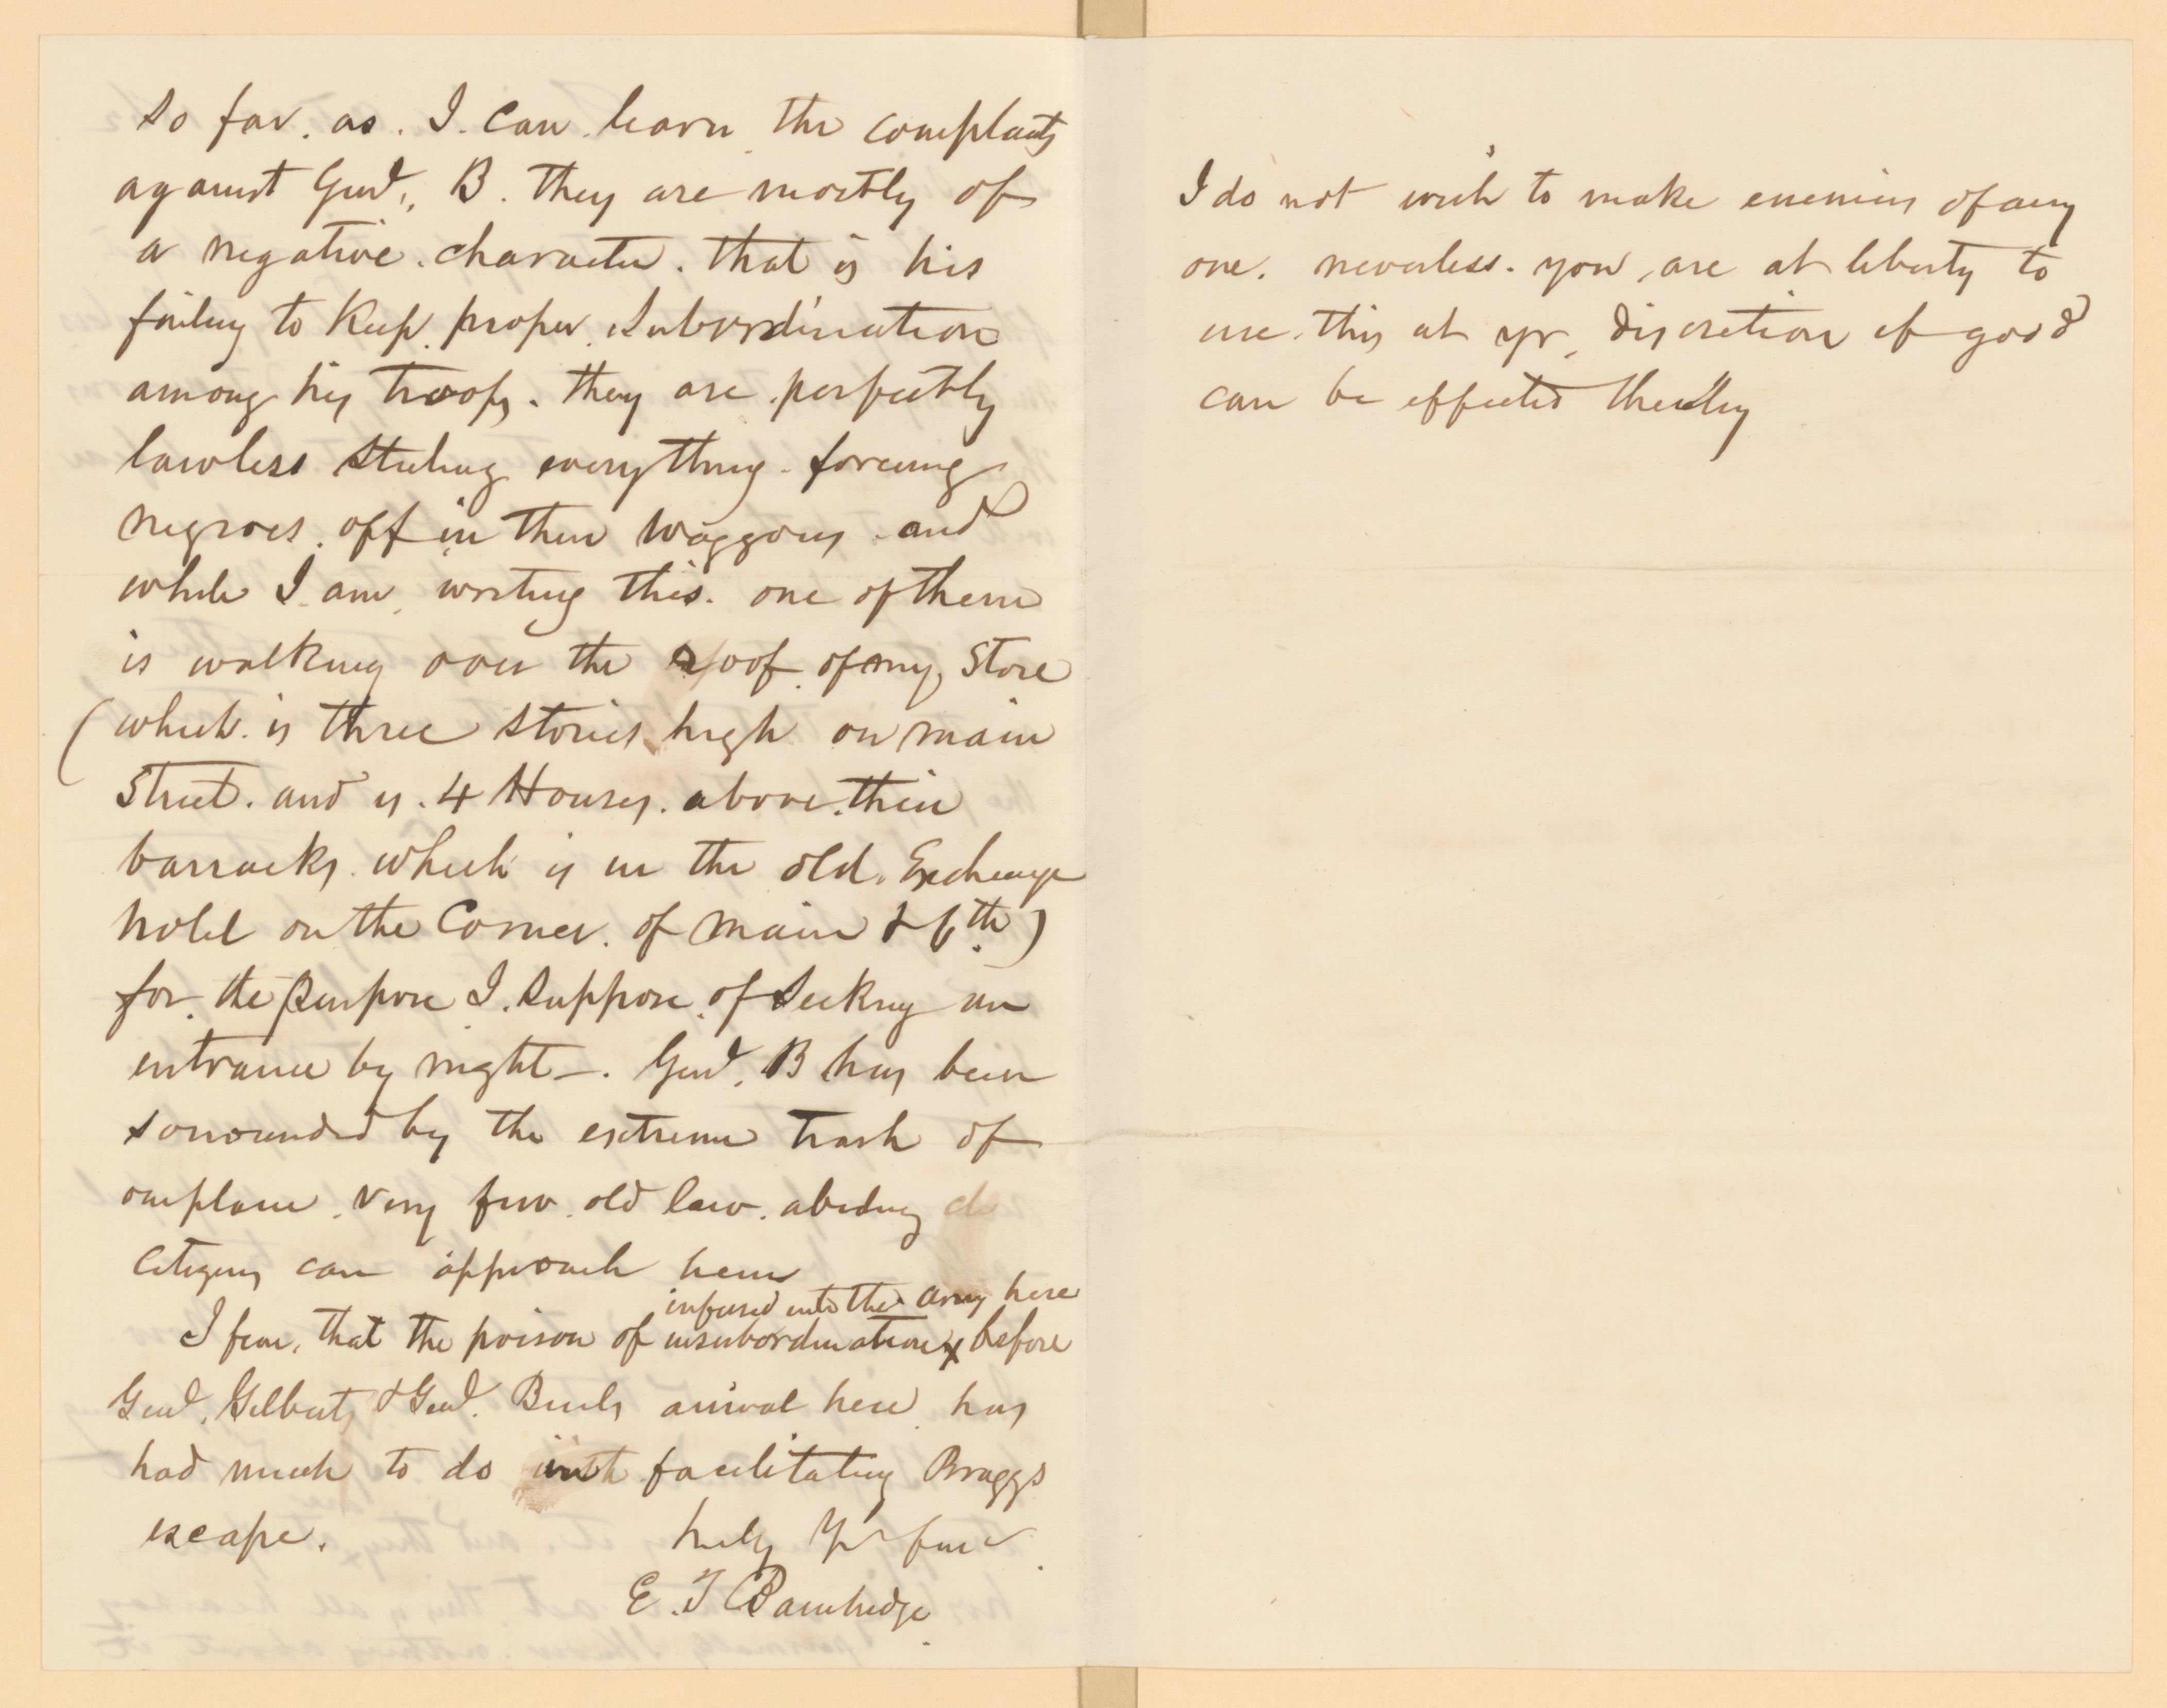 So far. as. I. can. learn. the complaints
against Genl., B. they are mostly of
a negative. character. that is his
failing to Keep. proper. subordination
among his troops. they are perfectly
lawless stealing everything. forceing
negroes. off in their Waggons. and
while I am, writing this. one of them
is walking over the roof. of my, Store
(which. is three stories high on main
Street. and is. 4 Houses. above. their
barracks. which is in the old. Exchange
hotel on the Corner. of main & 6th)
for. the purpose I. suppose. of seeking an
entrance by night—. Genl. B has been
sorrounded by the extreme trash of
our place. very few. old law. abiding
citizens can approach him
infused into the army here
I fear, that the poison of insubordination x before
Genl, Gilberts & Genl. Buels arival here has
had much to do with facilitating Braggs
escape.
truly Yr
E. T Bainbridge
I do not wish to make enemies of any
one. neverless. you, are at liberty to
use. this at yr, discretion if good
can be effected thereby